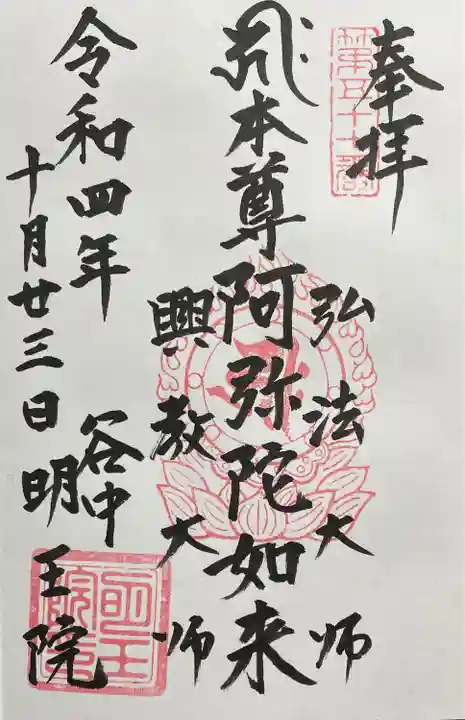 奉拝
第五十七番
弘法大师
本尊阿弥陀如来
興教大师
令和四年
十月廿三日
谷中
明王院
明王院